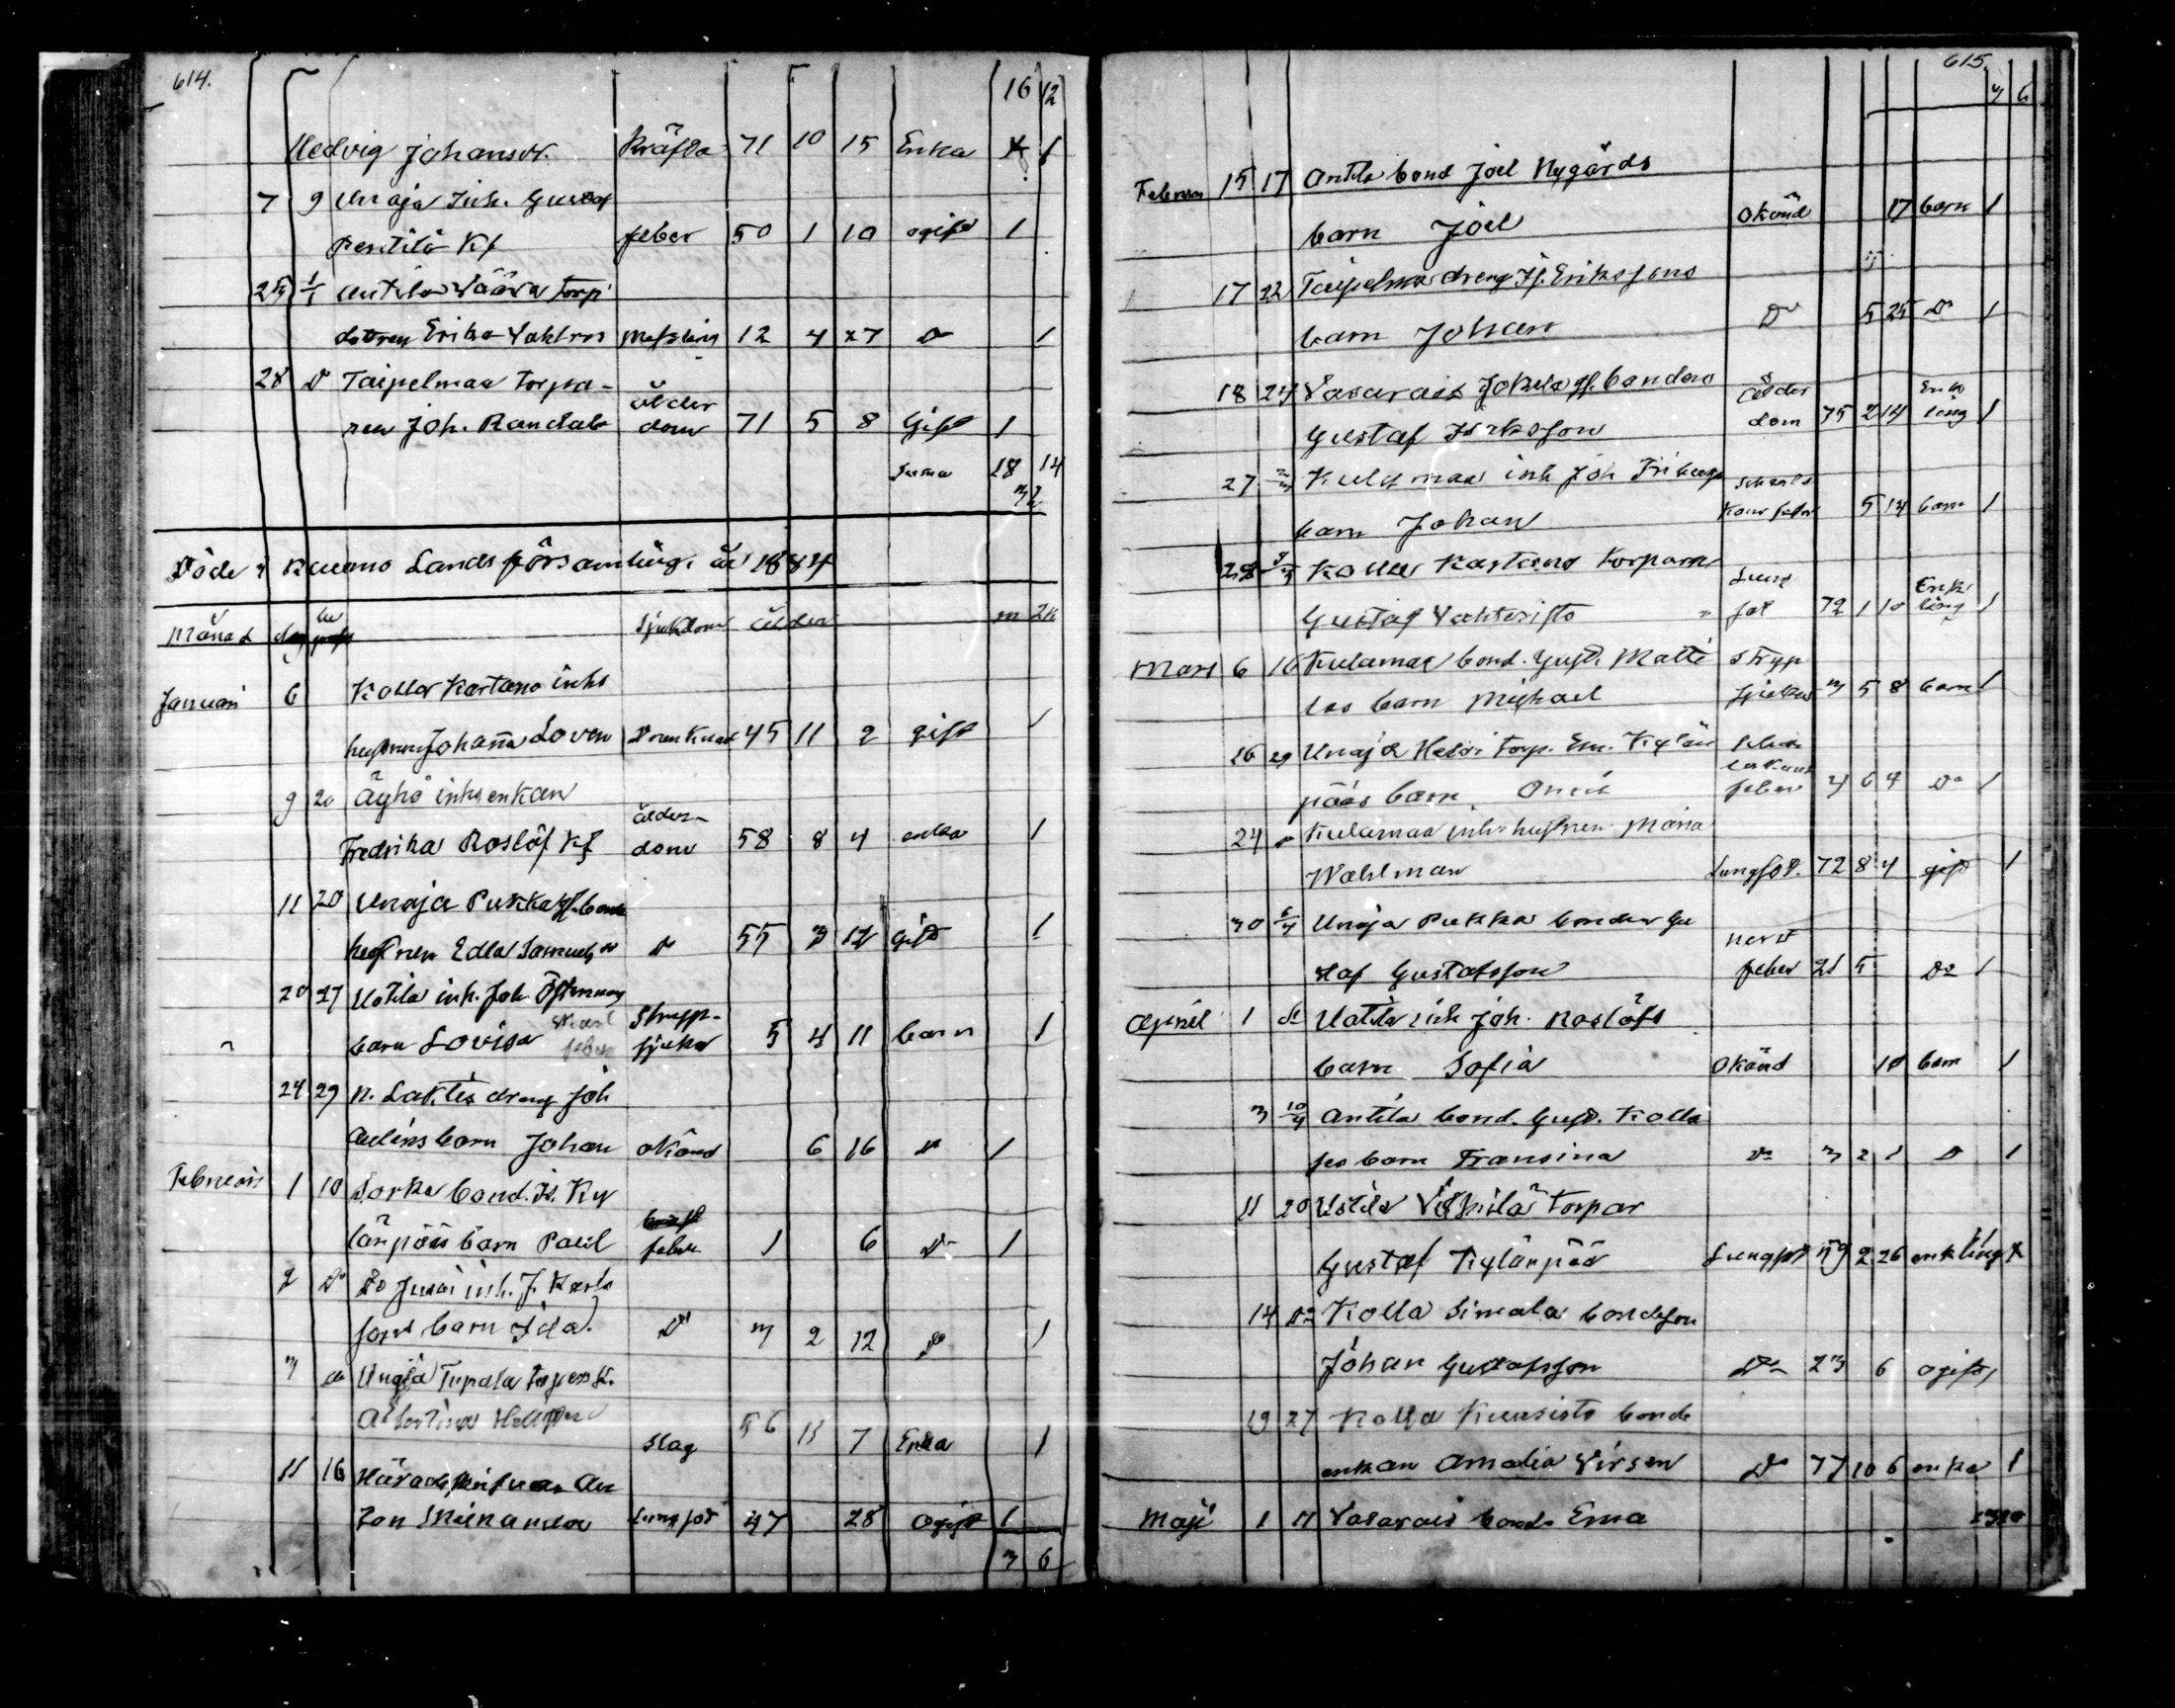 614.
16 12
Hedvig Johansdr. Kräfta 71 10 15 Enka 1
7 9 Unaja Inh. Gustaf
Pentilä Kf feber 50 1 10 ogift 1
25 1/1 Antila Wäära torp
dottren Erika Vahlroos Messling 12 4 27 Do 1
28 D Taipelmaa torpa-
ren Joh. Randala ålderdom 71 5 8 Gift 1
Suma 18 14
32
Döde i Raumo Landsförsamling. år 1884
Månad dag be grafn Sjukdom ålder m 2k
Januari 6 Kolla Kartano inhs
hustrun Johanna Loven Drunknad 45 11 2 gift 1
9 20 Äyhö inhs enkan
Fredrika Roslöf Kf ålderdom 58 8 4 enka 1
11 20 Unaja Pukka gf. bonde
hustrun Edla Samuelsdr D 55 3 12 Gift 1
20 27 Uotila inh. Joh. Östermans
barn Lovisa Skarl feber Strypsjuka 5 4 11 barn 1
24 29 N. Laktis dreng Joh
Aulins barn Johan okänd 6 16 D 1
Februari 1 10 Sorka bond. K. Ky
länpääs barn Paul feber 1 6 Do 1
2 Do Do Jussi inh. J. Karls
sons barn Ida. Do 3 2 12 Do 1
3 do Unaja Tupala
Albertina slag 56 11 7 Enka 1
11 16 Härads
Zon Lungsot 47 28 Ogift 1
3 6
615.
3 6
Februari 15 17 Antila bond Joel Nygårds
barn Joel Okänd 17 barn 1
17 22 Taipelmaa dreng Is. Erikssons
barn Johan Do 5 25 Do 1
18 24 Vasarais Jokela gf. bonden
Gustaf Isaksson ålderdom 75 2 14 Enkling 1
27 2/3 Kulamaa inh Joh Friberg
barn Johan Scharlakans feber 5 14 barn 1
28 9/3 Kolla Kartano torparn
Gustaf Vahteristo Lungsot 72 1 10 Enkling 1
Mars 6 16 Kulamaa bond. Gust. Matti
las barn Michael Strypsjukan 3 5 8 barn 1
16 29 Unaja Heiska torp. Em. Kylän
pääs barn Onni Scharlakans feber 4 6 4 Do 1
24 Kulamaa inhs hustrun Maria
Wahlman Lungsot. 72 8 4 gift 1
30 6/4 Unaja Pukka bonden Gu
staf Gustafsson nerv feber 21 5 Do 1
April 1 do Uotila inh Joh. Roslöfs
barn Sofia Okänd 10 barn 1
3 10/4 Antila bond. Gust. Kolla
ses barn Fransina Do 3 2 1 D 1
11 20 Uotila Vähilä torpar
Gustaf Kylänpää Lungsot 59 2 26 enkling 1
14 Do Kolla Simala bondeson
Johan Gustafsson Do 23 6 ogift 1
19 27 Kolla Kuusisto bonde
enkan Amalia Virsen Do 77 10 6 enka 1
Maji 1 11 Vasarais bonde Erna